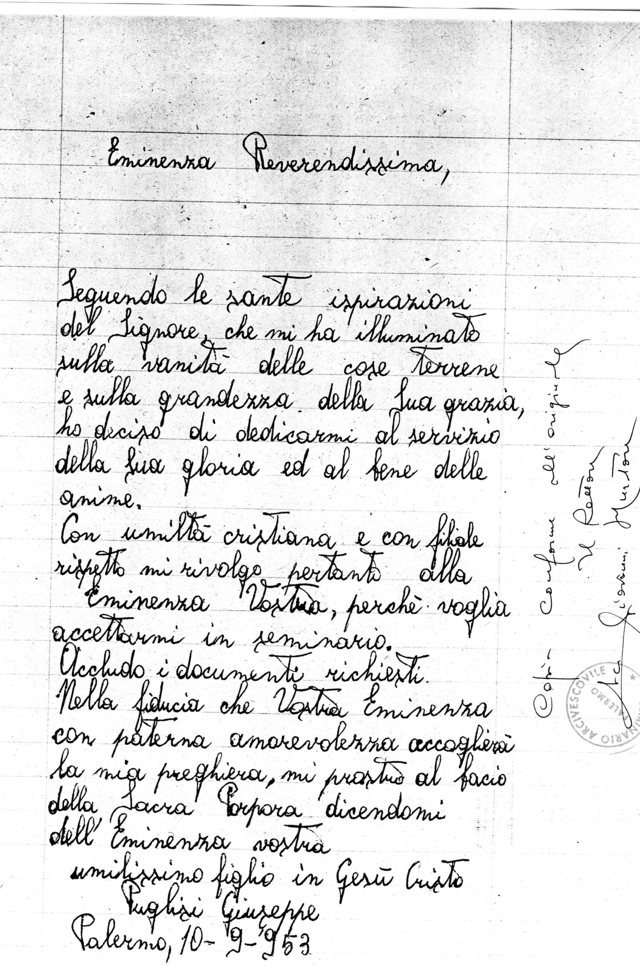 Eminenza Reverendissima,
Seguendo le sante ispirazioni
del Signore, che mi ha illuminato
sulla vanità delle cose terrene
e sulla grandezza della Sua grazia,
ho deciso di dedicarmi al servizio
della Sua gloria ed al bene delle
anime.
Con umiltà cristiana e con filiale
rispetto mi rivolgo pertanto alla
Eminenza Vostra, perchè voglia
accettarmi in seminario.
Accludo i documenti richiesti.
Nella fiducia che Vostra Eminenza
con paterna amorevolezza accoglierà
la mia preghiera, mi prostro al bacio
della Sacra Porpora dicendomi
dell'Eminenza vostra
umilissimo figlio in Gesù Cristo
Puglisi Giuseppe
Palermo, 10-9-953
Copia conforme all'originale
Il Rettore
Giovanni
SEMINARIO ARCIVESCOVILE
PALERMO